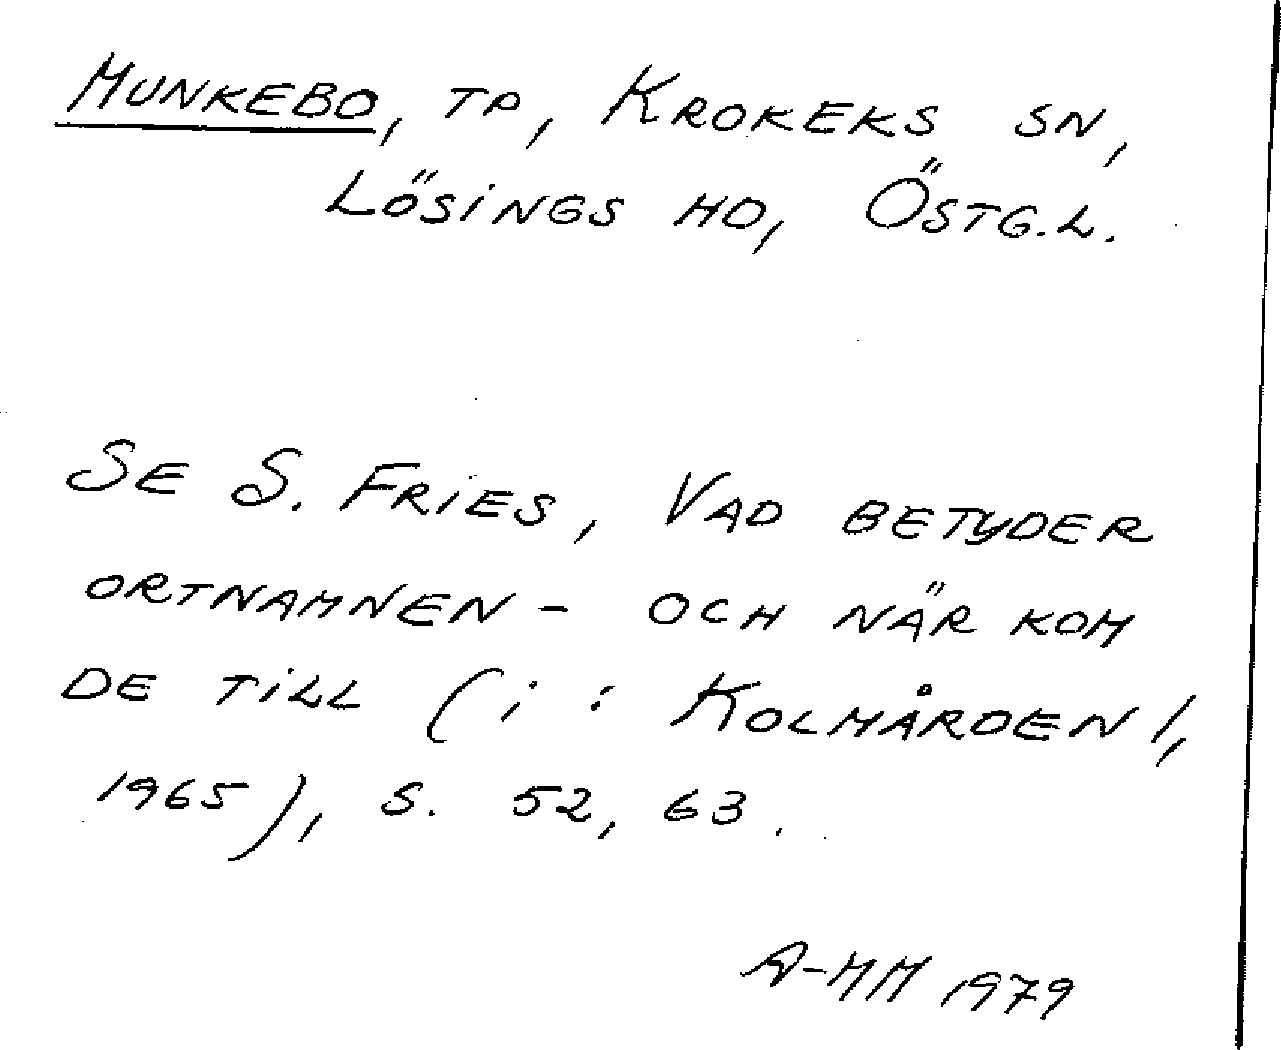 MUNKEBO, TP, KROKEKS SN,
LÖSINGS HD, ÖSTG.L.
SE S. FRIES, VAD BETYDER
ORTNAMNEN - OCH NÄR KOM
DE TILL (i : KOLMÅRDEN 1,
1965), S. 52, 63.
A-MM 1979